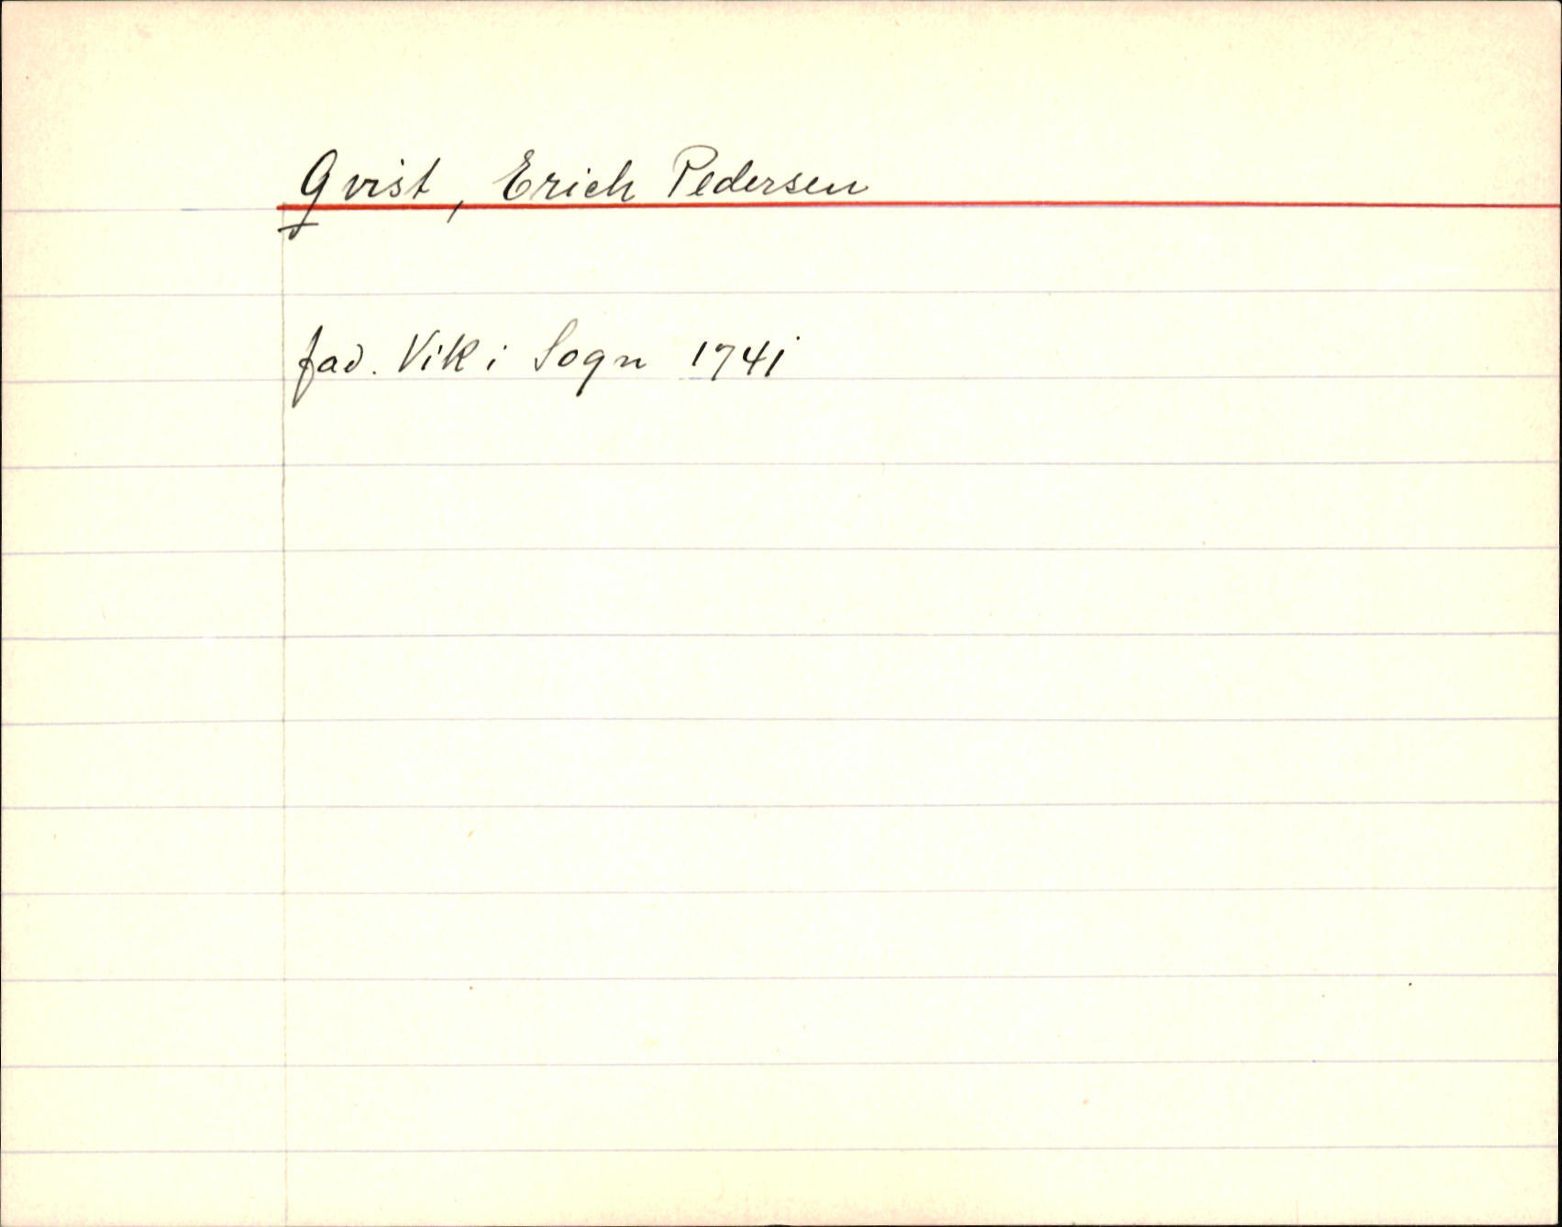 Qvist, Erich Pedersen
fad. Vik i Sogn 1741